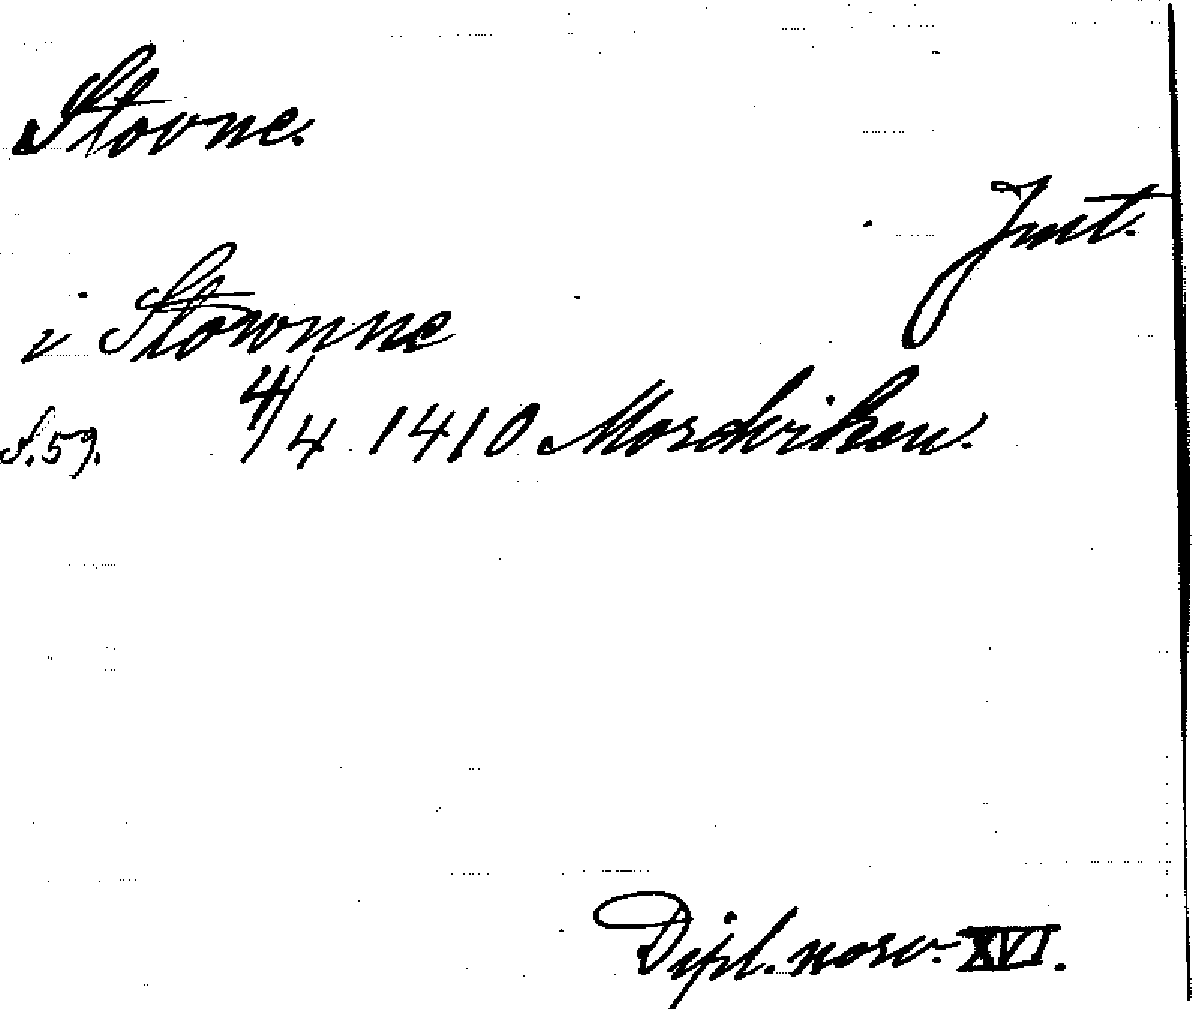 Stovne.
Just.
i Stownne
S.59. 4/4 1410 Mordviken.
Dipl. norv. XVI.